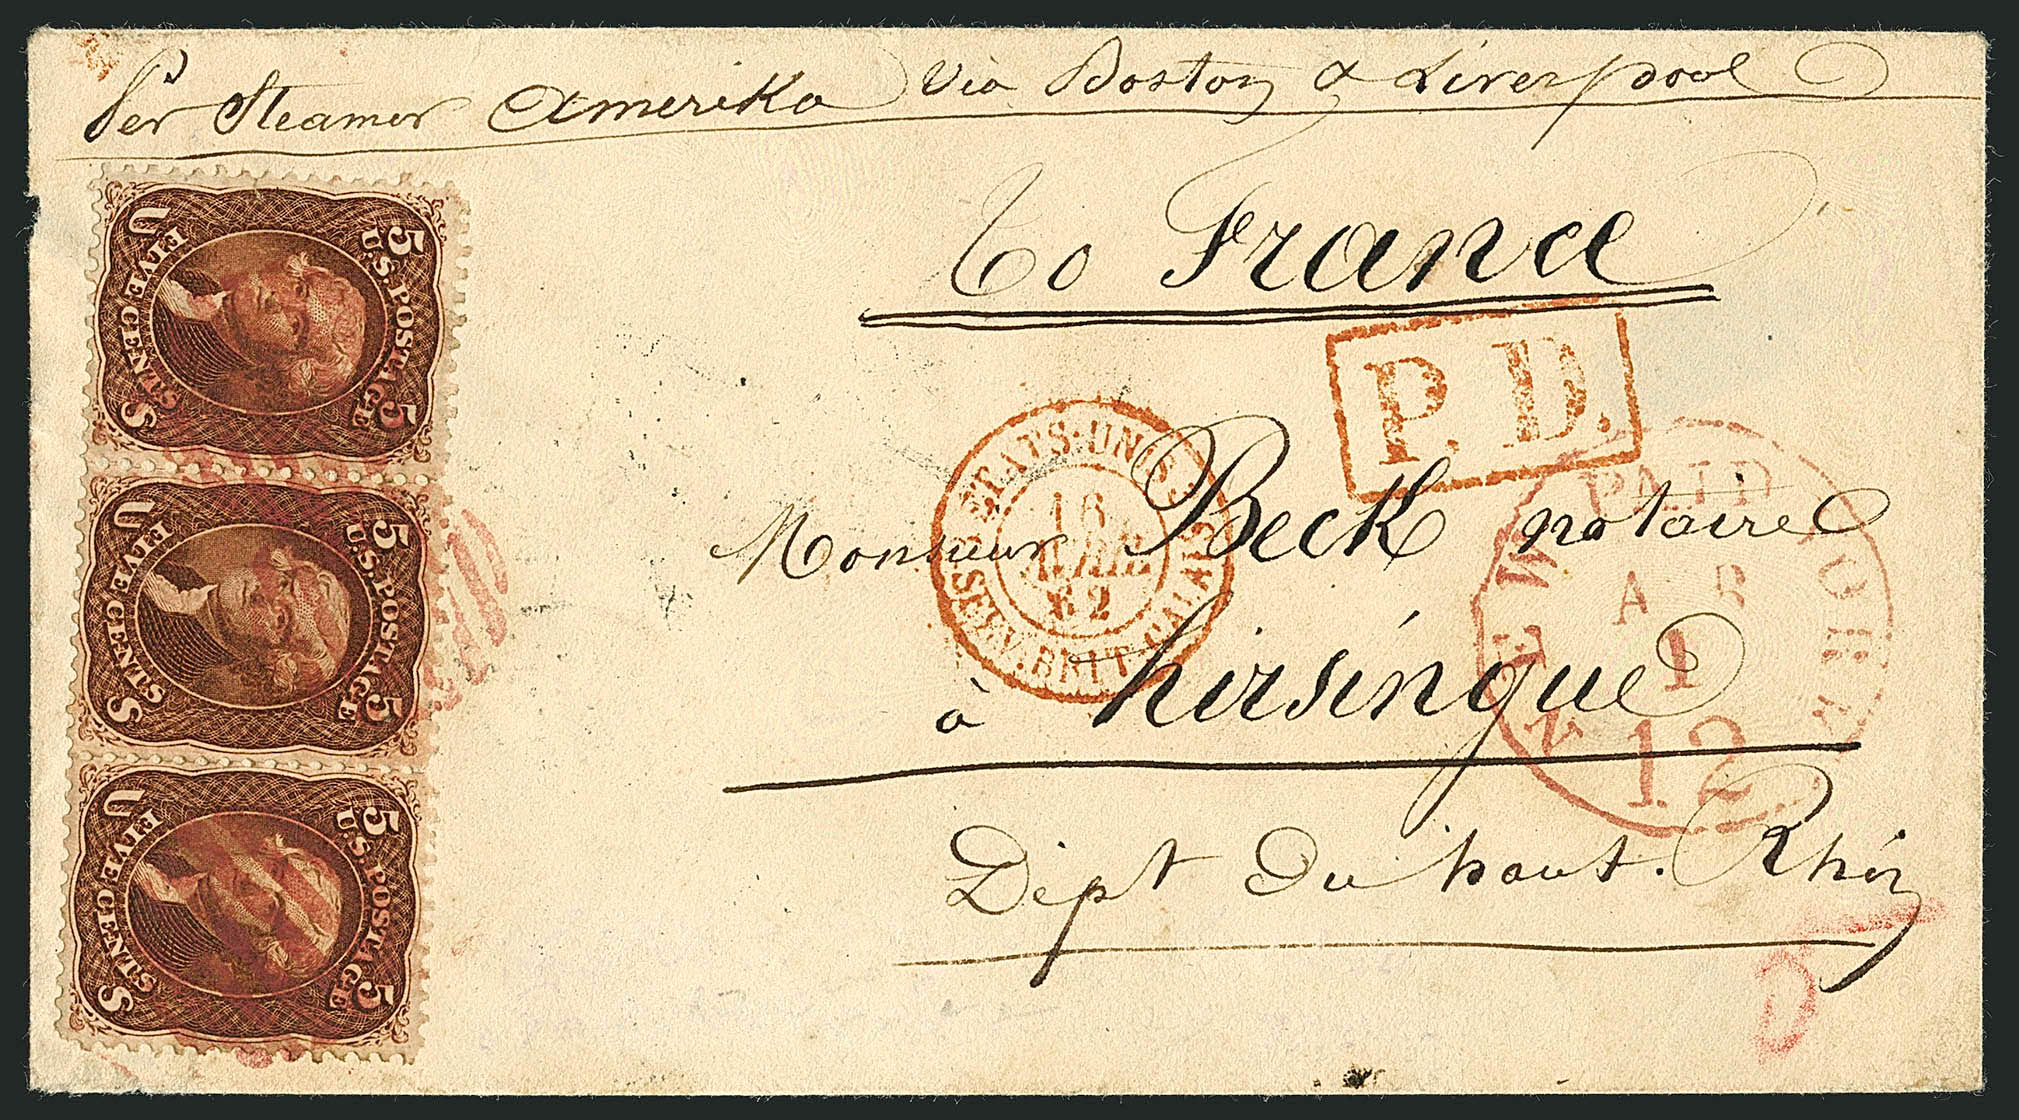 Per Steamer Amerika via Boston & Liverpool
To France
P.D.
Monsieur Beck notaire
à hirsingue
Dépt Du haut-Rhin
ETATS-UNIS SERV. BRIT. CALAIS
16
AVRIL
62
NEW YORK
PAID
APR
1
12
U 5
U.S. POSTAGE
FIVE CENTS
S 5
U 5
U.S. POSTAGE
FIVE CENTS
S 5
U 5
U.S. POSTAGE
FIVE CENTS
S 5